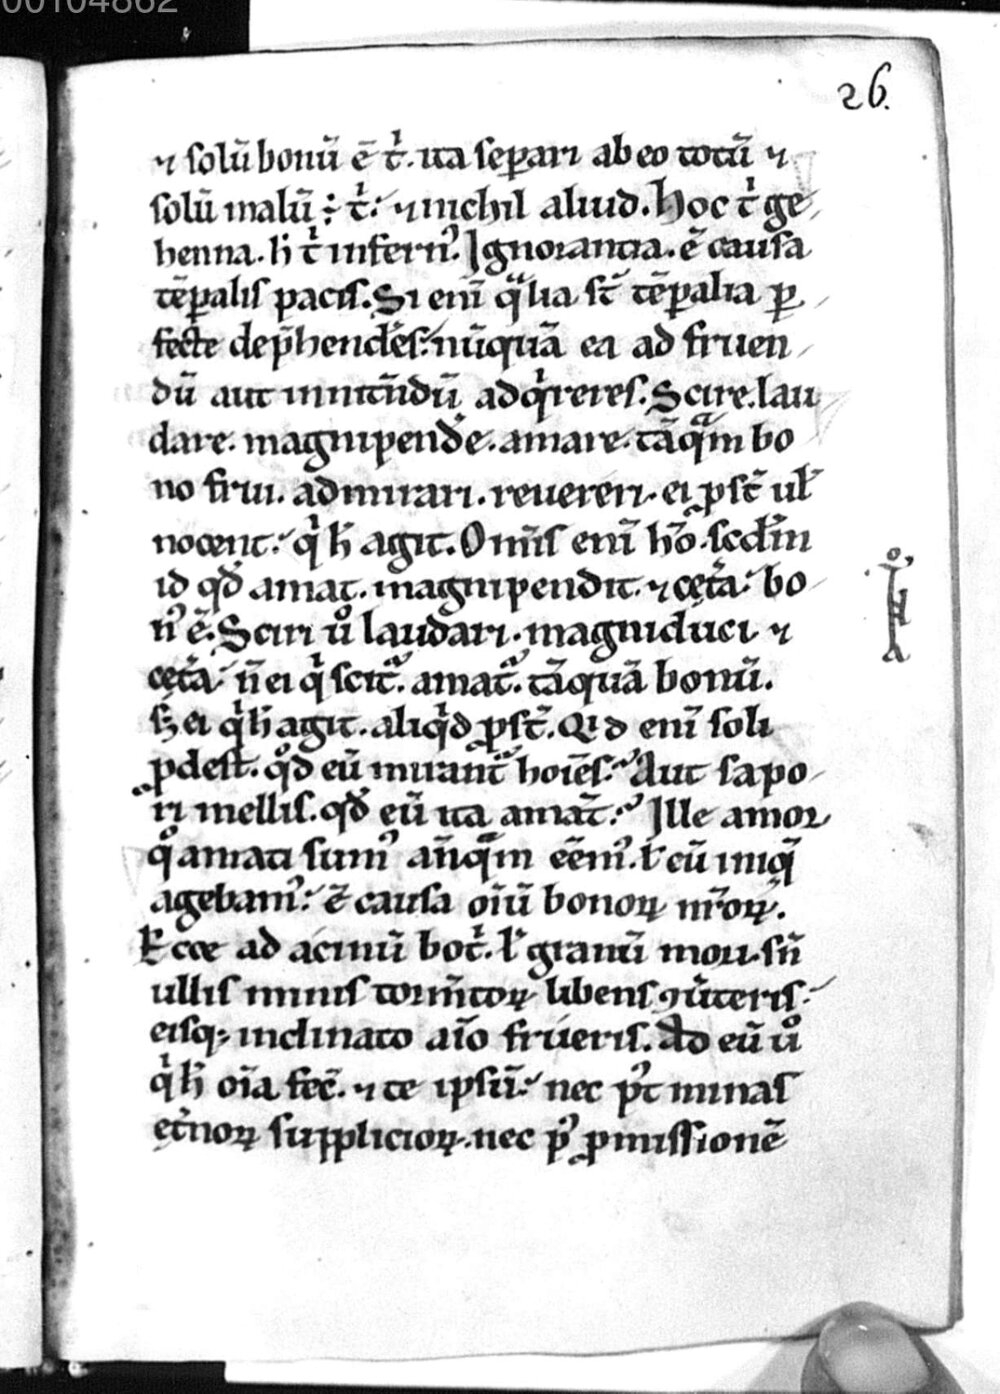 00104862
26.
⁊ solū bonū ē t̓. ita separi ab eo totū ⁊
solū malū ÷ t̓. ⁊ nichil aliud. Hoc t̓ ge
henna. h̄ t̓ infern᷒. Ignorantia. ē causa
tēꝑalis pacis. Si eni̅ qͣlia st̄ tēꝑalia ꝑ
fecte dep̄hendēs. nūquā ea ad fruen
dū aut innitēdū adqⁱreres. Scire. lau
dare. magnipendere. amare. tāqͣm bo
no frui. admirari. revereri. ei ꝓst̄ ul̄
nocent. qⁱ h̄ agit. Omīs eni̅ hō. scd̄m
id qd̄ amat. magnipendit. ⁊ cęt̄a. bo
n᷒ ē. Sciri ů laudari. magniduci ⁊
cęt̄a. n̄ ei qⁱ scit̄. amat̄. tāquā bonū.
s; ei qⁱ h̄ agit. aliqⁱd ꝓst̄. Qⁱd eni̅ soli
ꝓdest. qd̊ eū mirant̄ hoīēs. Aut sapo
ri mellis. qd̄ eū ita amāt. Ille amor
qͦ amati sum᷒ an̄qͣm eēm᷒. ł cū iniq̄
agebam᷒. ē causa oīū bonoꝝ nr̄oꝝ.
Ecce ad acinū bot̄. ł granū mori. sn̄
ullis minis torm̄toꝝ libens ꝯūteris.
eisq; inclinato aīo frueris. Ad eū ů
qⁱ h̄ oīa fec̄. ⁊ te ipsū. nec ꝓpt̄ minas
et̓noꝝ suppliciorꝝ. nec ꝓp᷒ ꝓmissionē